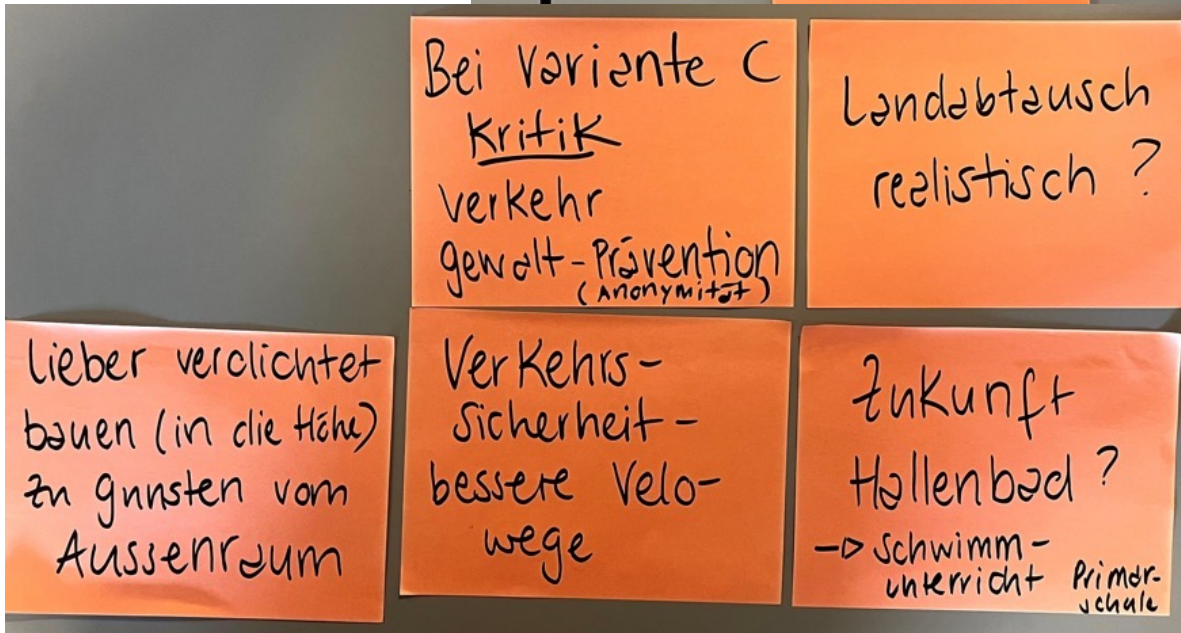 Bei Variante C
Kritik
Verkehr
gewalt-Prävention
(Anonymität)
Landabtausch
realistisch ?
lieber verdichtet
bauen (in die Höhe)
zu gunsten vom
Aussenraum
Verkehrs-
Sicherheit-
bessere Velo-
wege
Zukunft
Hallenbad ?
→ Schwimm-
unterricht Primar-
schule